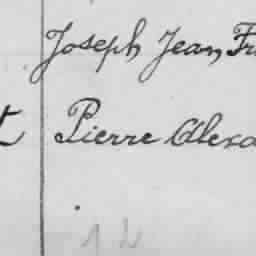 Joseph Jean Fr
t Pierre Alexa